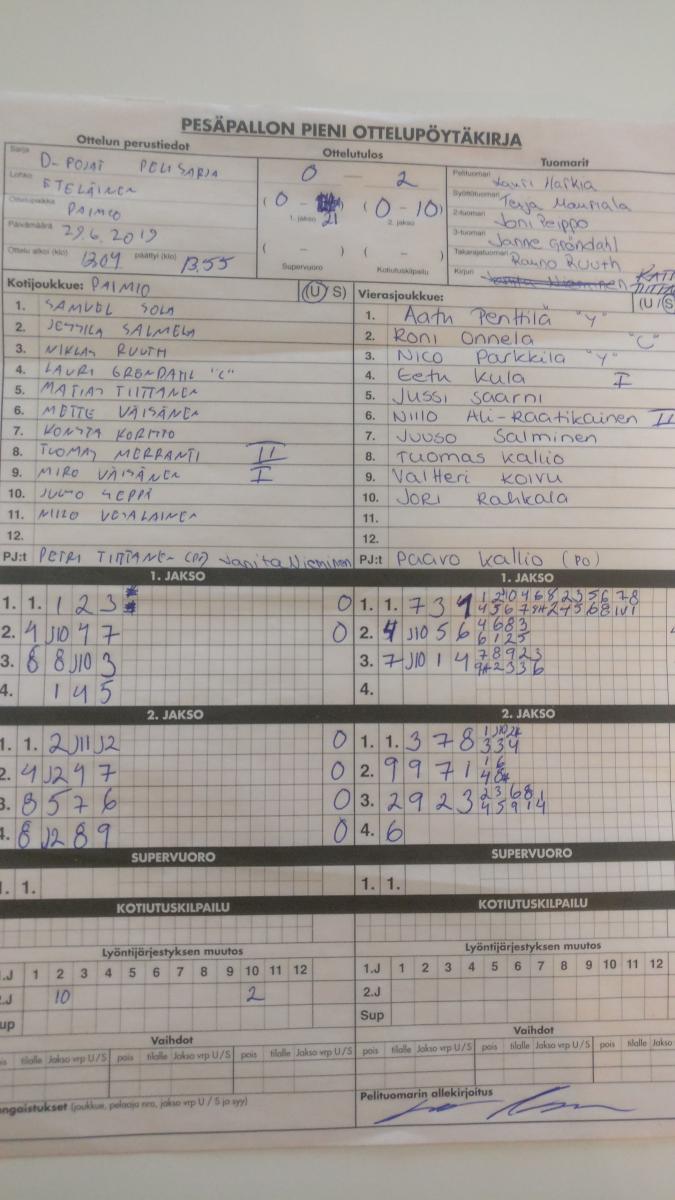 PESÄPALLON PIENI OTTELUPÖYTÄKIRJA
Ottelun perustiedot
Sarja D-POJAT PELISARJA
Lohko ETELÄINEN
Ottelupaikka PAIMIO
Päivämäärä 29.6.2019
Ottelu alkoi (klo) 13.04 päättyi (klo) 13.55
Ottelutulos
0 — 2
(0 - 21) (0 - 10)
1. jakso 2. jakso
( - ) ( - )
Supervuoro Kotiutuskilpailu
Tuomarit
Pelituomari Lauri Harkia
Syöttötuomari Terja Mauriala
2-tuomari Joni Peippo
3-tuomari Janne Gröndahl
Takarajatuomari Rauno Ruuth
Kirjuri
Kotijoukkue: PAIMIO (U/S)
1. SAMUEL SOLA
2. SALMELA
3. NIKLAS RUUTH
4. LAURI GRÖNDAHL "C"
5. MATIAS TIITTANEN
6. METTE VÄISÄNEN
7. KONSTA KORMTO
8. TUOMAS MERRANTI II
9. MIRO VÄISÄNEN I
10. SEPPÄ
11. NIILO VESALAINEN
12.
PJ:t PETRI TIITTANEN (PO) Janita Nieminen
Vierasjoukkue: (U/S)
1. Aatu Penttilä "Y"
2. Roni Onnela "C"
3. Nico Parkkila "Y"
4. Eetu Kula I
5. Jussi Saarni
6. Niilo Ali-Raatikainen II
7. Juuso Salminen
8. Tuomas Kallio
9. Valtteri Koivu
10. Jori Rahkala
11.
12.
PJ:t Paavo Kallio (PO)
1. JAKSO
1. 1. 1 2 3 0
2. 4 J10 4 7 0
3. 8 8 J10 3
4. 1 4 5
1. JAKSO
1. 1. 7 3 4
2. 4 J10 5 6 4683 6125
3. 7 J10 1 4 78923
4.
2. JAKSO
1. 1. 2 J11 J2 0
2. 4 J2 4 7 0
3. 8 5 7 6 0
4. 8 J2 8 9 0
2. JAKSO
1. 1. 3 7 8 334
2. 9 9 7 1
3. 2 9 2 3
4. 6
SUPERVUORO
1. 1.
SUPERVUORO
1. 1.
KOTIUTUSKILPAILU
KOTIUTUSKILPAILU
Lyöntijärjestyksen muutos
1.J 1 2 3 4 5 6 7 8 9 10 11 12
2.J 10 2
Sup
Lyöntijärjestyksen muutos
1.J 1 2 3 4 5 6 7 8 9 10 11 12
2.J
Sup
Vaihdot
pois tilalle Jakso vrp U/S pois tilalle Jakso vrp U/S pois tilalle Jakso vrp U/S
Vaihdot
pois tilalle Jakso vrp U/S pois tilalle Jakso vrp U/S pois tilalle Jakso vrp
ngaistukset (joukkue, pelaaja nro, jakso vrp U / S ja syy)
Pelituomarin allekirjoitus